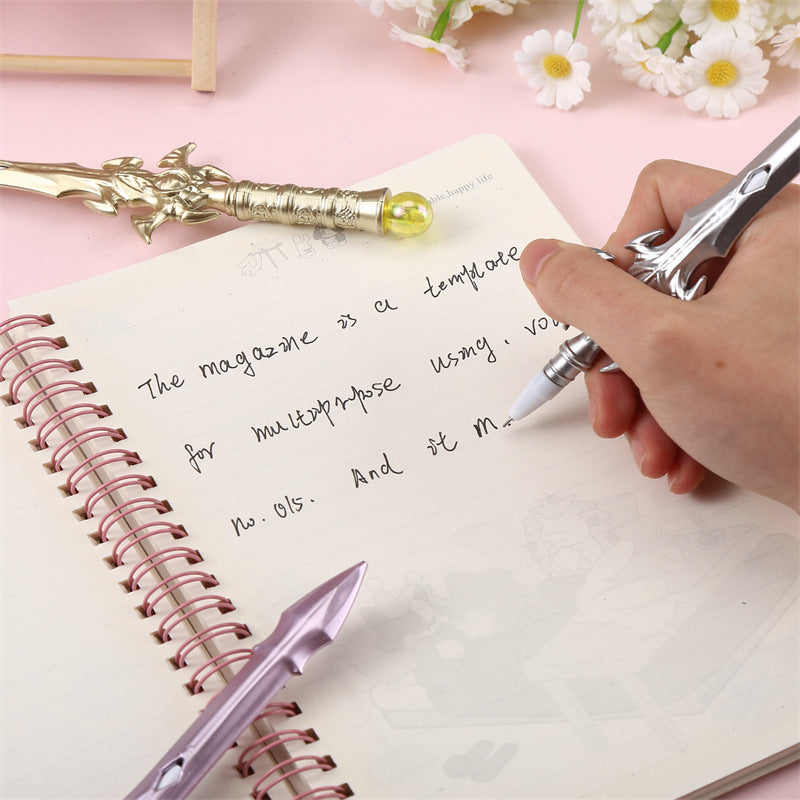 able,happy life
The magazine is a template
for multiprpose using, vol
no. 015. And it m